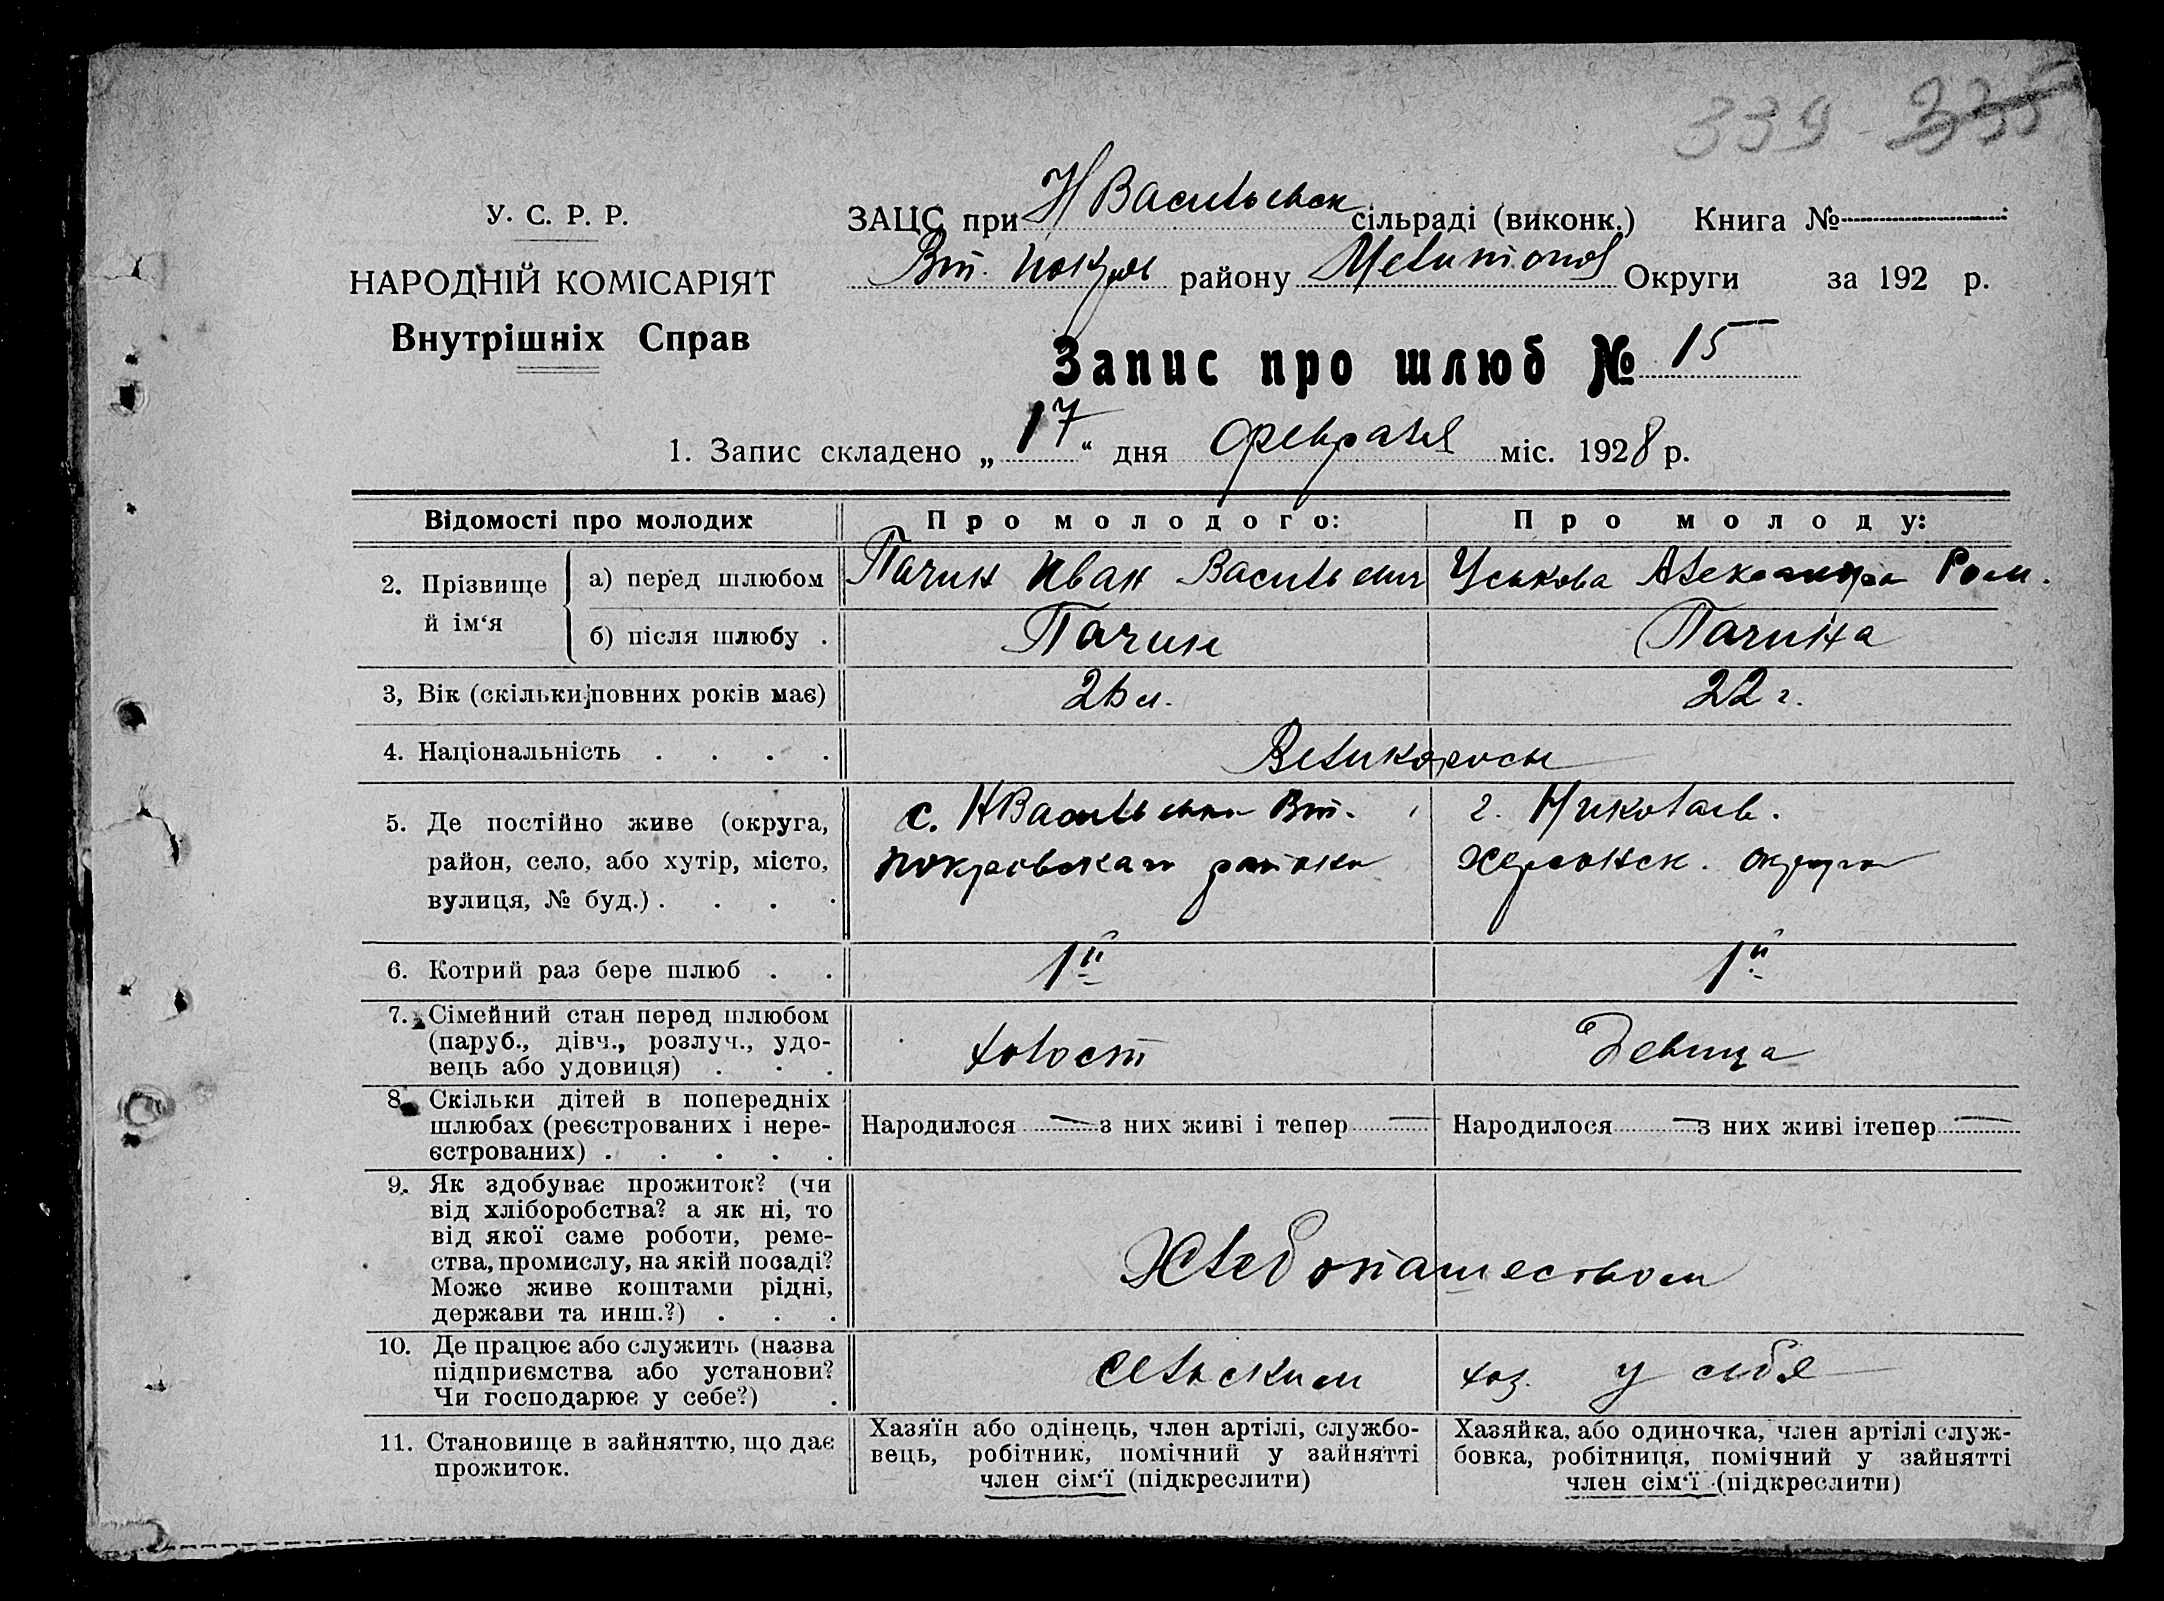 339 335
У. С. Р. Р.
НАРОДНІЙ КОМІСАРІЯТ
Внутрішніх Справ
ЗАЦС при Н Васильевск сільраді (виконк.) Книга №
Вт. Покров району Мелитопол Округи за 192 р.
Запис про шлюб № 15
1. Запис складено „ 17 “ дня февраля міс. 1928 р.
Відомості про молодих
Про молодого:
Про молоду:
2. Прізвище й ім‘я
а) перед шлюбом
Пачин Иван Васильевич
Уськова Александра Ром.
б) після шлюбу .
Пачин
Пачина
3, Вік (скільки повних років має)
22 г.
4. Національність . . . .
Великоросы
5. Де постійно живе (округа,
район, село, або хутір, місто,
вулиця, № буд.) . . . .
с. НВасильевка Вт.
покровскаго района
г. Николаев.
херсонск. округа
6. Котрий раз бере шлюб . .
1й
1й
7. Сімейний стан перед шлюбом
(паруб., дівч., розлуч., удо-
вець або удовиця) . . .
холост
Девица
8. Скільки дітей в попередніх
шлюбах (реєстрованих і нере-
єстрованих) . . . . .
Народилося — з них живі і тепер —
Народилося — з них живі ітепер —
9. Як здобуває прожиток? (чи
від хліборобства? а як ні, то
від якої саме роботи, реме-
ства, промислу, на якій посаді?
Може живе коштами рідні,
держави та инш.?) . . .
Хлебопашеством
10. Де працює або служить (назва
підприємства або установи?
Чи господарює у себе?) .
сельским хоз. у себя
11. Становище в зайняттю, що дає
прожиток.
Хазяїн або одінець, член артілі, службо-
вець, робітник, помічний у зайнятті
член сім‘ї (підкреслити)
Хазяйка, або одиночка, член артілі служ-
бовка, робітниця, помічний у зайнятті
член сім‘ї (підкреслити)